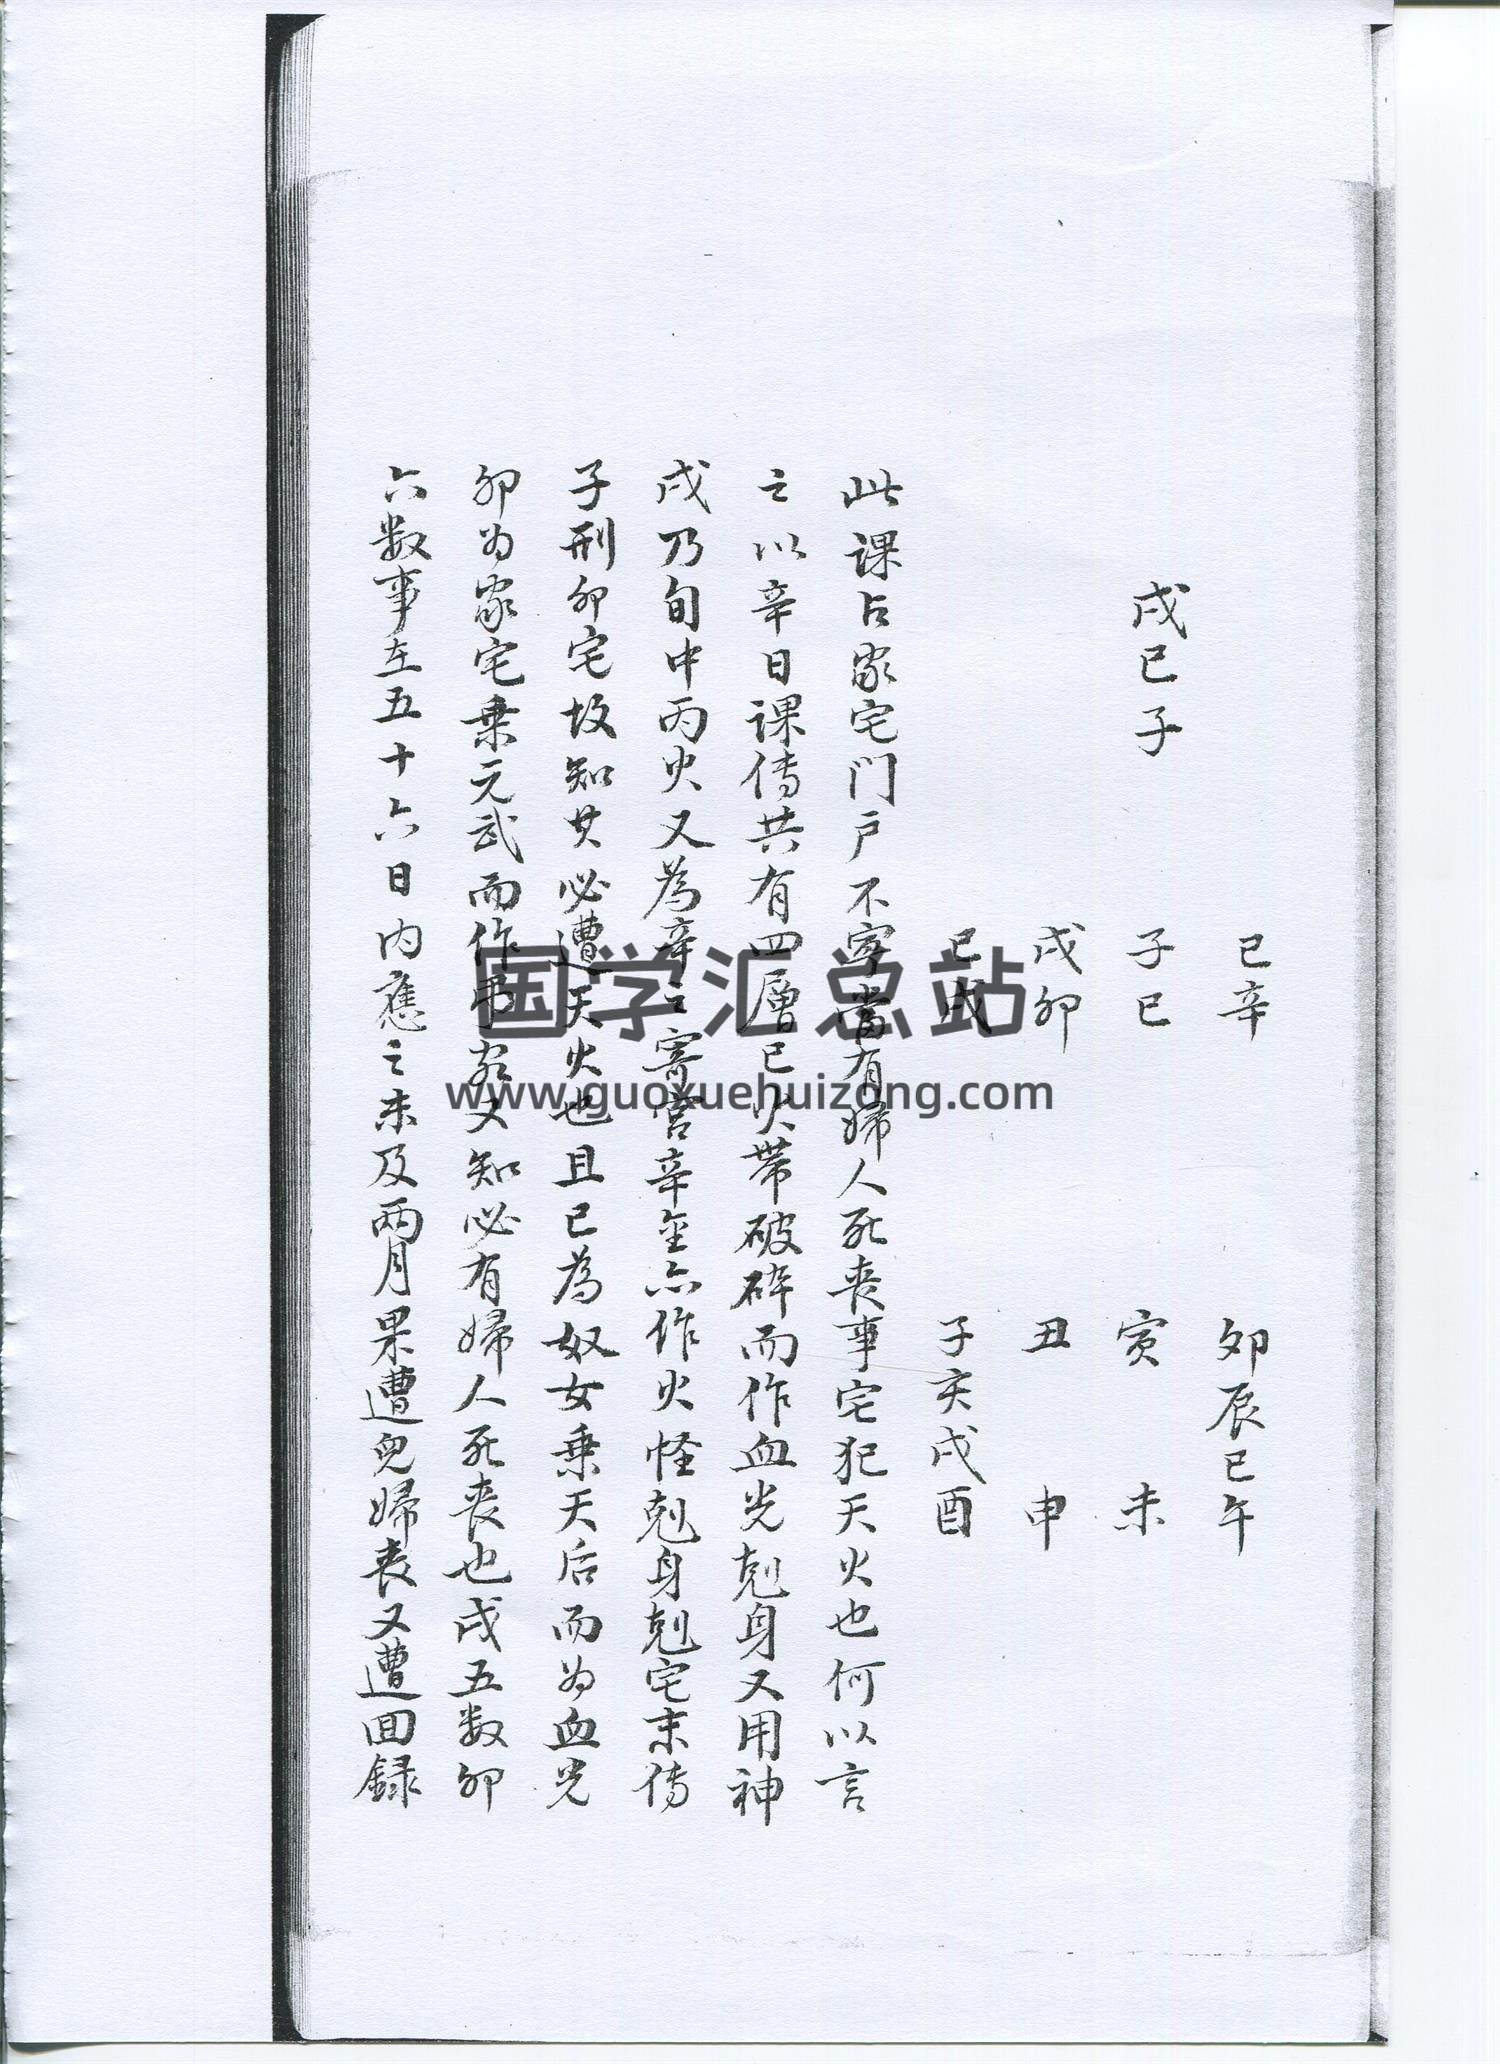 巳辛 卯辰巳午
戌巳子 子巳 寅 未
戌卯 丑 申
巳戌 子亥戌酉
此课占家宅门户不寧當有婦人死丧事宅犯天火也何以言
之以辛日课传共有四層巳火带破碎而作血光剋身又用神
戌乃旬中丙火又為辛之寄宫辛坐亦作火怪剋身剋宅末传
子刑卯宅故知其必遭天火也且巳為奴女乗天后而为血光
卯为家宅乗元武而作吊客又知必有婦人死丧也戌五数卯
六数事在五十六日内應之未及兩月果遭兒婦丧又遭回録
国学汇总站
www.guoxuehuizong.com